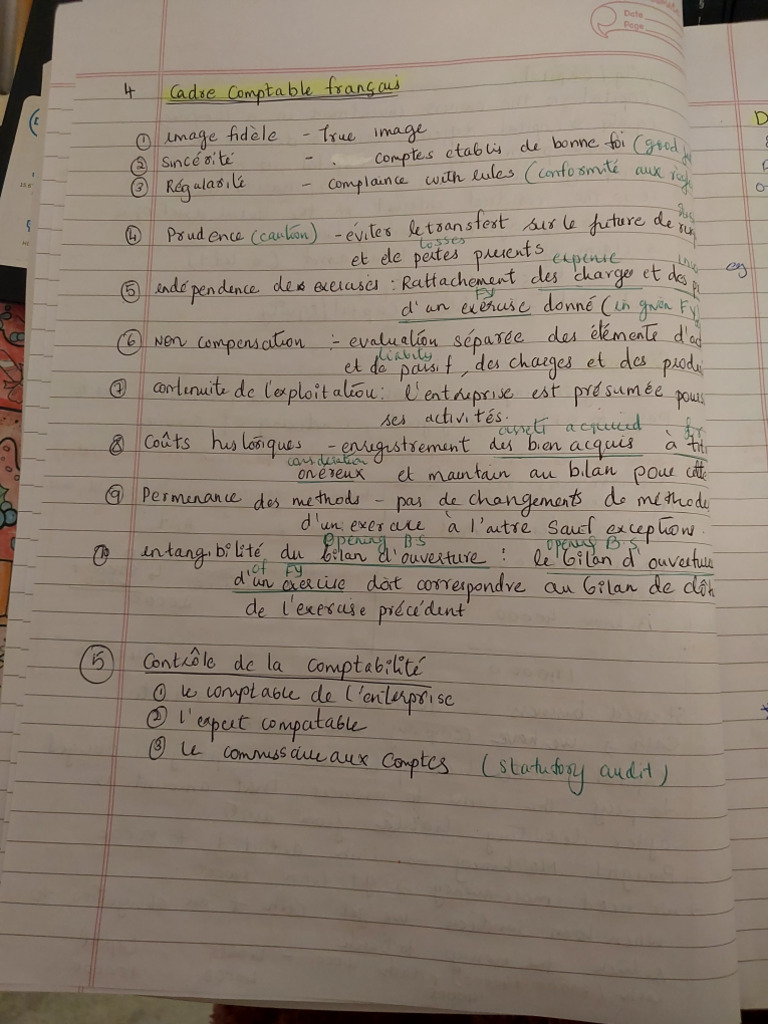 Date
Page
4 Cadre Comptable français
① image fidèle - True image
② Sincérité - . comptes etablis de bonne foi (good
③ Régularité - complaince with rules (conformité aux
④ Prudence (caution) - éviter le transfert sur le future de
losses
et de pertes presents
expense
⑤ indépendence des exercises : Rattachement des charges et des
FY
d'un exercise donné (in given FY
⑥ Non compensation :- evaluation séparée des éléments
liability
et de passif, des charges et des
⑦ contenuite de l'exploitation : l'entreprise est présumée
ses activités.
assets acquired
⑧ Coûts historiques - enregistrement des bien acquis à
consideration
onéreux et maintain au bilan pour
⑨ Permenance des methods - pas de changements de methode
d'un exercise à l'autre sauf exceptions.
Opening B.S opening B.S
⑩ entangibilité du bilan d'ouverture : le bilan d'ouverture
of FY
d'un exercise doit correspondre au bilan de
de l'exercise précédent
⑤ Contrôle de la comptabilité
① le comptable de l'enterprise
② l'expert compatable
③ Le commissaire aux Comptes (statutory audit)
D
ey